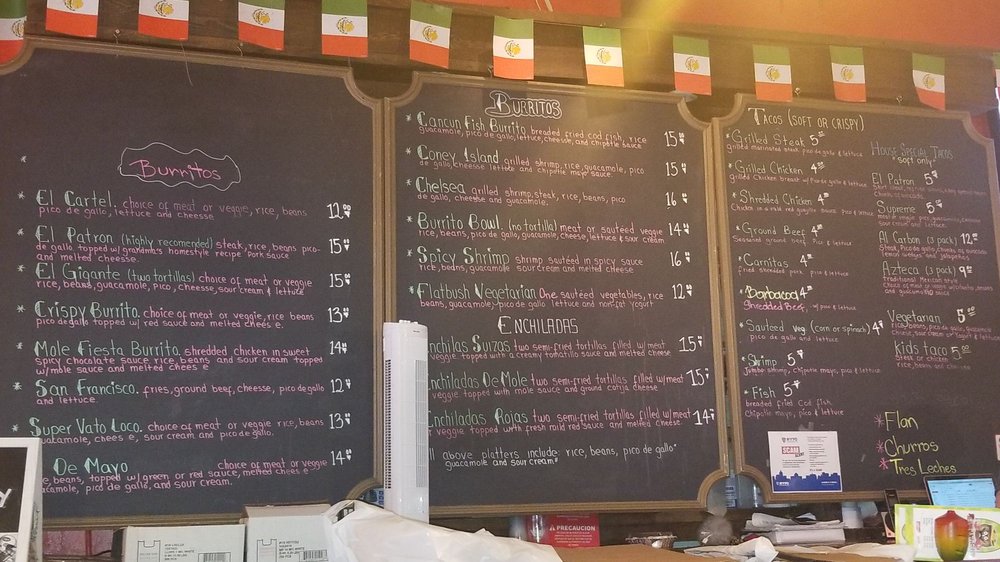 Burritos
* El Cartel. choice of meat or veggie, rice, beans 12.00
pico de gallo, lettuce and cheesse
* El Patron (highly recomended) steak, rice, beans pico- 15
de gallo, topped w/ grandma's homestyle recipe pork sauce
and melted cheesse.
* El Gigante (two tortillas) choice of meat or veggie 15
rice, beans, guacamole, pico, cheesse, sour cream & lettuce
* Crispy Burrito. choice of meat or veggie, rice beans 13
pico de gallo topped w/ red sauce and melted chees e.
* Mole Fiesta Burrito. shredded chicken in sweet 14
spicy chocolate sauce rice, beans, and sour cream topped
w/ mole sauce and melted chees e
* San Francisco. fries, ground beef, cheesse, pico de gallo 12
and lettuce.
* Super Vato Loco. choice of meat or veggie, rice, beans 13
guacamole, chees e, sour cream and pico de gallo.
De Mayo choice of meat or veggie 14
e, beans, topped w/ green or red sauce, melted chees e
guacamole, pico de gallo, and sour cream.
Burritos
* Cancun Fish Burrito breaded fried cod fish, rice 15
guacamole, pico de gallo, lettuce, cheesse, and chipotle sauce
* Coney Island grilled shrimp, rice, guacamole, pico 15
de gallo, cheesse lettuce and chipotle mayo sauce.
* Chelsea grilled shrimp, steak, rice, beans, pico 16
de gallo, cheesse and guacamole.
* Burrito Bowl. (no tortilla) meat or sautéed veggie 14
rice, beans, pico de gallo, guacamole, cheese, lettuce & sour cream
* Spicy Shrimp shrimp sautéed in spicy sauce 16
rice, beans, guacamole sour cream and melted cheese
* Flatbush Vegetarian One sautéed vegetables, rice 12
beans, guacamole, pico de gallo lettuce and non-fat yogurt
Enchiladas
nchilas Suizas two semi-fried tortillas filled w/ meat 15
veggie, topped with a creamy tomatillo sauce and melted cheese
nchiladas De Mole two semi-fried tortillas filled w/ meat 15
veggie topped with mole sauce and ground cotija cheese
Enchiladas Rojas two semi-fried tortillas filled w/ meat 14
or veggie topped with fresh mild red sauce and melted cheese
ll above platters include: rice, beans, pico de gallo"
guacamole and sour cream."
Tacos (soft or crispy)
* Grilled Steak 5
grilled marinated steak pico de gallo & lettuce
* Grilled Chicken 4
grilled Chicken breast w/ pico de gallo & lettuce
* Shredded Chicken 4
Chicken in a mild red guajillo sauce pico & lettuce
* Ground Beef 4
Seasoned ground beef, Pico & lettuce
* Carnitas 4
fried shredded pork pico & lettuce
* Barbacoa 4
Shredded Beef, w/ pico & lettuce
* Sauteed veg. (corn or spinach) 4
pico de gallo and lettuce
* Shrimp 5
Jumbo shrimp, chipotle mayo, pico & lettuce
* Fish 5
breaded fried Cod fish,
Chipotle mayo, pico & lettuce
House Special Tacos
"soft only"
El Patron 5
Supreme 5
Al Carbon (3 pack) 12
Azteca (3 pack) 9
traditional Mexican style
Vegetarian 5
kids taco 5
Steak or chicken
rice, beans, and cheese
* Flan
* Churros
* Tres Leches
SCAM
PRECAUCION